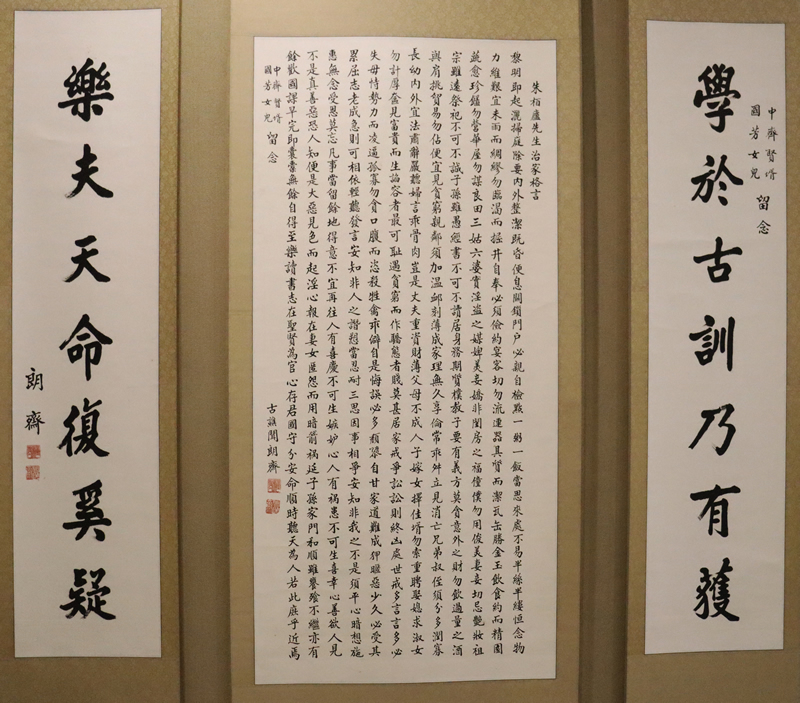 學於古訓乃有獲
中齊賢壻
國芳女兒
留念
朱栢廬先生治家格言
黎明即起灑掃庭除要內外整潔既昏便息關鎖門戶必親自檢點一粥一飯當思來處不易半絲半縷恒念物
力維艱宜未雨而綢繆勿臨渴而掘井自奉必須儉約宴客切勿流連器具質而潔瓦缶勝金玉飲食約而精園
蔬愈珍饈勿營華屋勿謀良田三姑六婆實淫盜之媒婢美妾嬌非閨房之福僮僕勿用俊美妻妾切忌艷妝祖
宗雖遠祭祀不可不誠子孫雖愚經書不可不讀居身務期質樸教子要有義方莫貪意外之財勿飲過量之酒
與肩挑貿易勿佔便宜見貧窮親鄰須加溫卹刻薄成家理無久享倫常乖舛立見消亡兄弟叔侄須分多潤寡
長幼內外宜法肅辭嚴聽婦言乖骨肉豈是丈夫重資財薄父母不成人子嫁女擇佳壻勿索重聘娶媳求淑女
勿計厚奩見富貴而生諂容者最可恥遇貧窮而作驕態者賤莫甚居家戒爭訟訟則終凶處世戒多言言多必
失毋恃勢力而凌逼孤寡勿貪口腹而恣殺牲禽乖僻自是悔誤必多頹墮自甘家道難成狎暱惡少久必受其
累屈志老成急則可相依輕聽發言安知非人之譖愬當忍耐三思因事相爭安知非我之不是須平心暗想施
惠無念受恩莫忘凡事當留餘地得意不宜再往人有喜慶不可生嫉妒心人有禍患不可生喜幸心善欲人見
不是真善惡恐人知便是大惡見色而起淫心報在妻女匿怨而用暗箭禍延子孫家門和順雖饔飧不繼亦有
餘歡國課早完即囊橐無餘自得至樂讀書志在聖賢為官心存君國守分安命順時聽天為人若此庶乎近焉
中齊賢壻
國芳女兒
留念
朗齋
樂夫天命復奚疑
朗齋